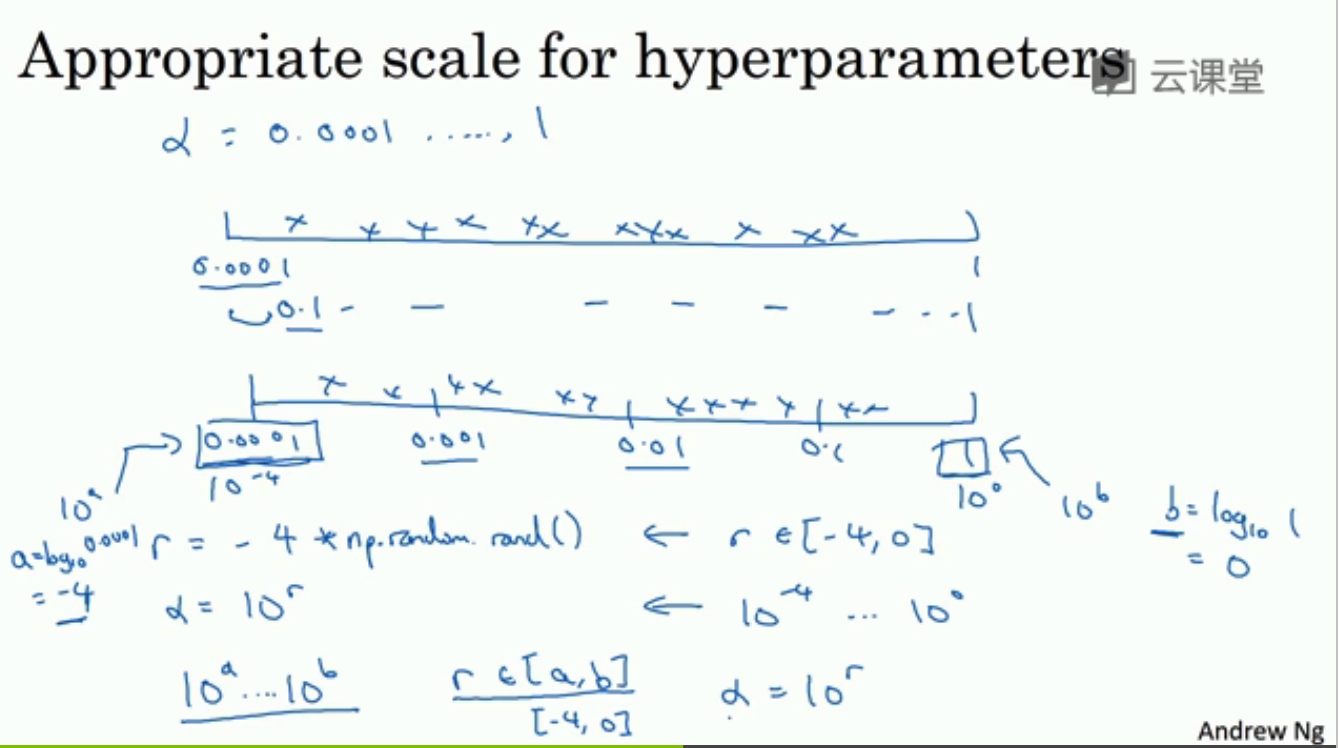 Appropriate scale for hyperparameters
云课堂
α = 0.0001 ....., 1
0.0001 1
0.1 - - - - - - . . . 1
0.0001 0.001 0.01 0.1 1
10⁻⁴ 10⁰
10ᵃ 10ᵇ
a=log₁₀ 0.0001
= -4
r = -4 * np.random.rand() ← r ∈ [-4, 0]
b = log₁₀ 1
= 0
α = 10ʳ ← 10⁻⁴ ... 10⁰
10ᵃ....10ᵇ r ∈ [a, b] α = 10ʳ
[-4, 0]
Andrew Ng